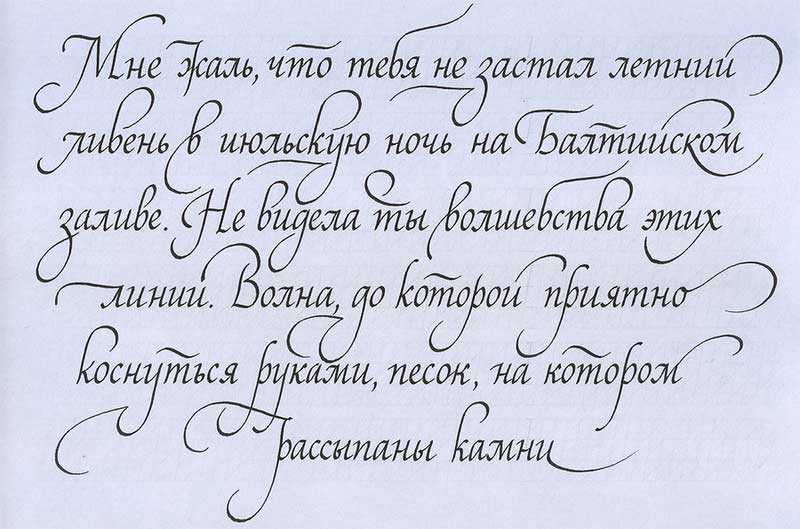 Мне жаль, что тебя не застал летний
ливень в июльскую ночь на Балтийском
заливе. Не видела ты волшебства этих
линий. Волна, до которой приятно
коснуться руками, песок, на котором
рассыпаны камни